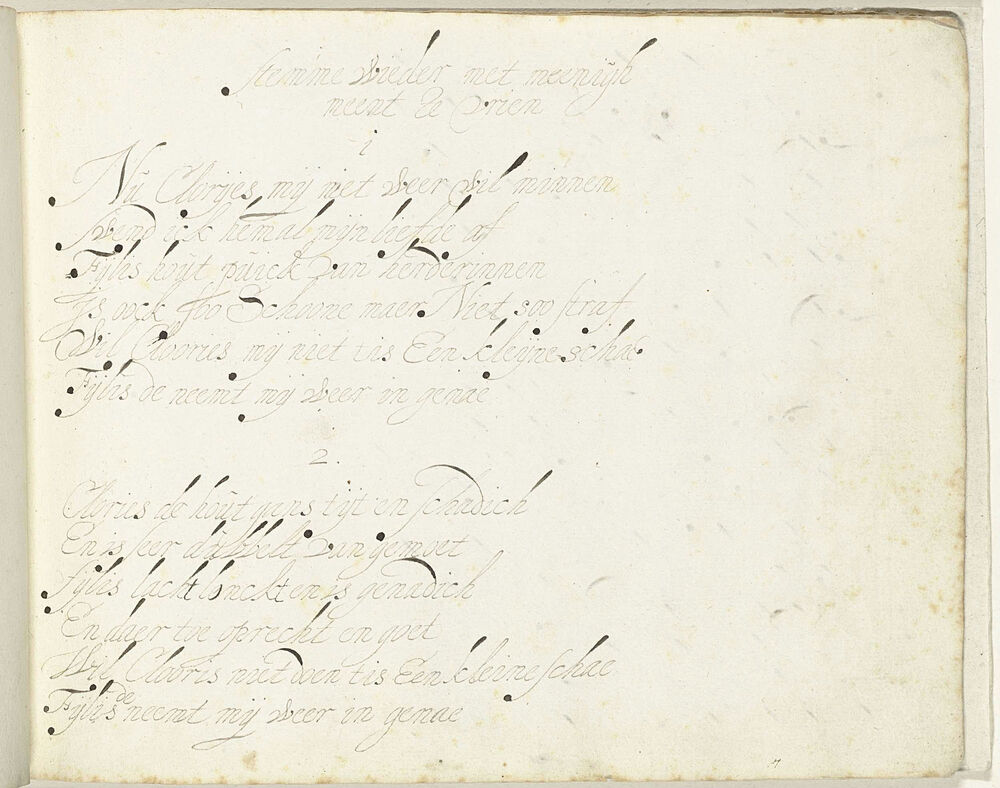 stemme wieder met meenigh
meent de Drien
1
Nu Clorijes mij niet weer wil minnen
Wend ick hemal mijn liefde af
Fijlis hoijt puick van herderinnen
Js ock soo Schoone maer Niet soo straf
Wil Cloories mij niet tis Een kleijne schae
Fijlis de neemt mij weer in genae
2.
Clories de hout gens tijt en schadich
En is seer dubbelt van gemoet
fijlis lacht lonckt en is genadich
En daer toe oprecht en goet
Wil Clooris niet doen tis Een kleine schae
Fijlis de neemt mij weer in genae